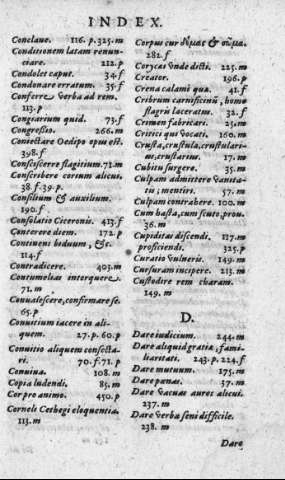 INDEX.
Conclaue. 116. p. 325. m
Conditionem latam renun-
ciare. 212. p
Condolet caput. 34. f
Condonare erratum. 35. f
Conferre verba ad rem.
113. p
Congiarium quid. 73. f
Congressio. 266. m
Coniectare Oedipo opus est.
398. f
Consciscere flagitium. 72. m
Conscribere cornum alicui.
38. f. 39. p.
Consilium & auxilium.
190. f
Consolatio Ciceronis. 413. f
Conterere diem. 172. p
Contineni bæduum, &c.
114. f
Contradicere. 403. m
Contumelias interquere
71. m
Conualescere, confirmare se.
65. p
Conuitium iacere in ali-
quem. 27. p. 60. p
Conuitio aliquem consecta-
ri. 70. f. 71. p
Conuiua. 108. m
Copia ludendi. 85. m
Corpo animo. 450. p
Corneli Cethegi eloquentia.
113. m
Corpus cur &
282. f
Corycus vnde dicti. 225. m
Creator. 196. p
Crena calami quæ. 41. f
Cribrum carnificinū, homo
flagris laceratus. 32. f
Crimen fabricari. 25. m
Critici qui vocati. 160. m
Crusta, crustula, crustulari-
us, crustarius. 17. m
Cubitu surgere. 35. m
Culpam admittere vanita-
tis; mentiri. 57. m
Culpam contrahere. 100. m
Cum hasta, cum scuto, pron.
36. m
Cupiditas discendi. 117. m
proficiendi. 325. p
Curatio vulneris. 149. m
Cursuram incipere. 213. m
Custodire rem charam.
149. m
D.
Dare iudicium. 244. m
Dare aliquid gratiæ, fami-
liaritati. 243. p. 224. f
Dare mutuum. 175. m
Dare pœnas. 37. m
Dare vacuas aures alicui.
237. m
Dare verba seni difficile.
238. m
Dare